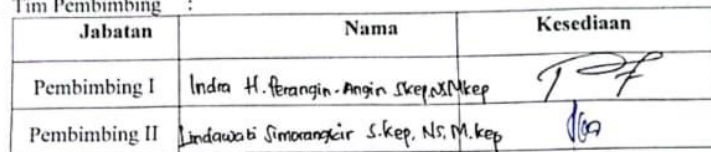 Tim Pembimbing :
Jabatan Nama Kesediaan
Pembimbing I Indra H. Perangin-Angin Skep,NS,Mkep
Pembimbing II Lindawati Simorangkir S.Kep, Ns, M.Kep